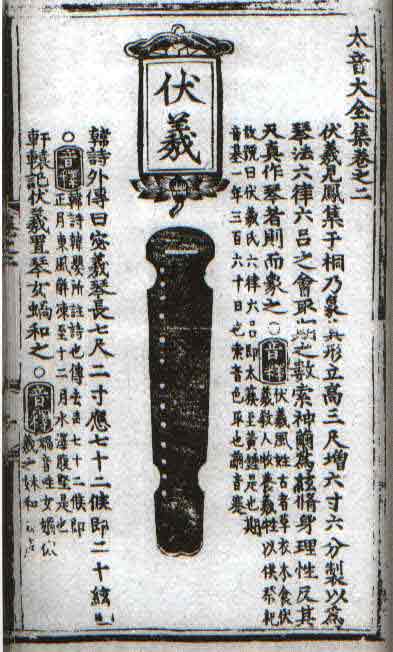 太音大全集卷之二
伏羲見鳳集于桐乃象其形立高三尺增六寸六分製以為
琴法六律六呂之會取期之數索神繭為絃脩身理性反其
天真作琴者則而象之○音釋
伏羲風姓古者草衣木食伏
羲教人牧養犧牲以供祭祀
故號曰伏羲氏六律六呂即太簇至黃鍾是也期
音基一年三百六十日也索者也繭音
伏羲
韓詩外傳曰宓羲琴長七尺二寸應七十二候即二十絃也
○音釋
韓詩韓嬰所註詩也傳去聲七十二候即
正月東風解凍至十二月水澤腹堅是也
軒轅記伏羲置琴女媧和之○音釋
媧音哇女媧伏
羲之妹和